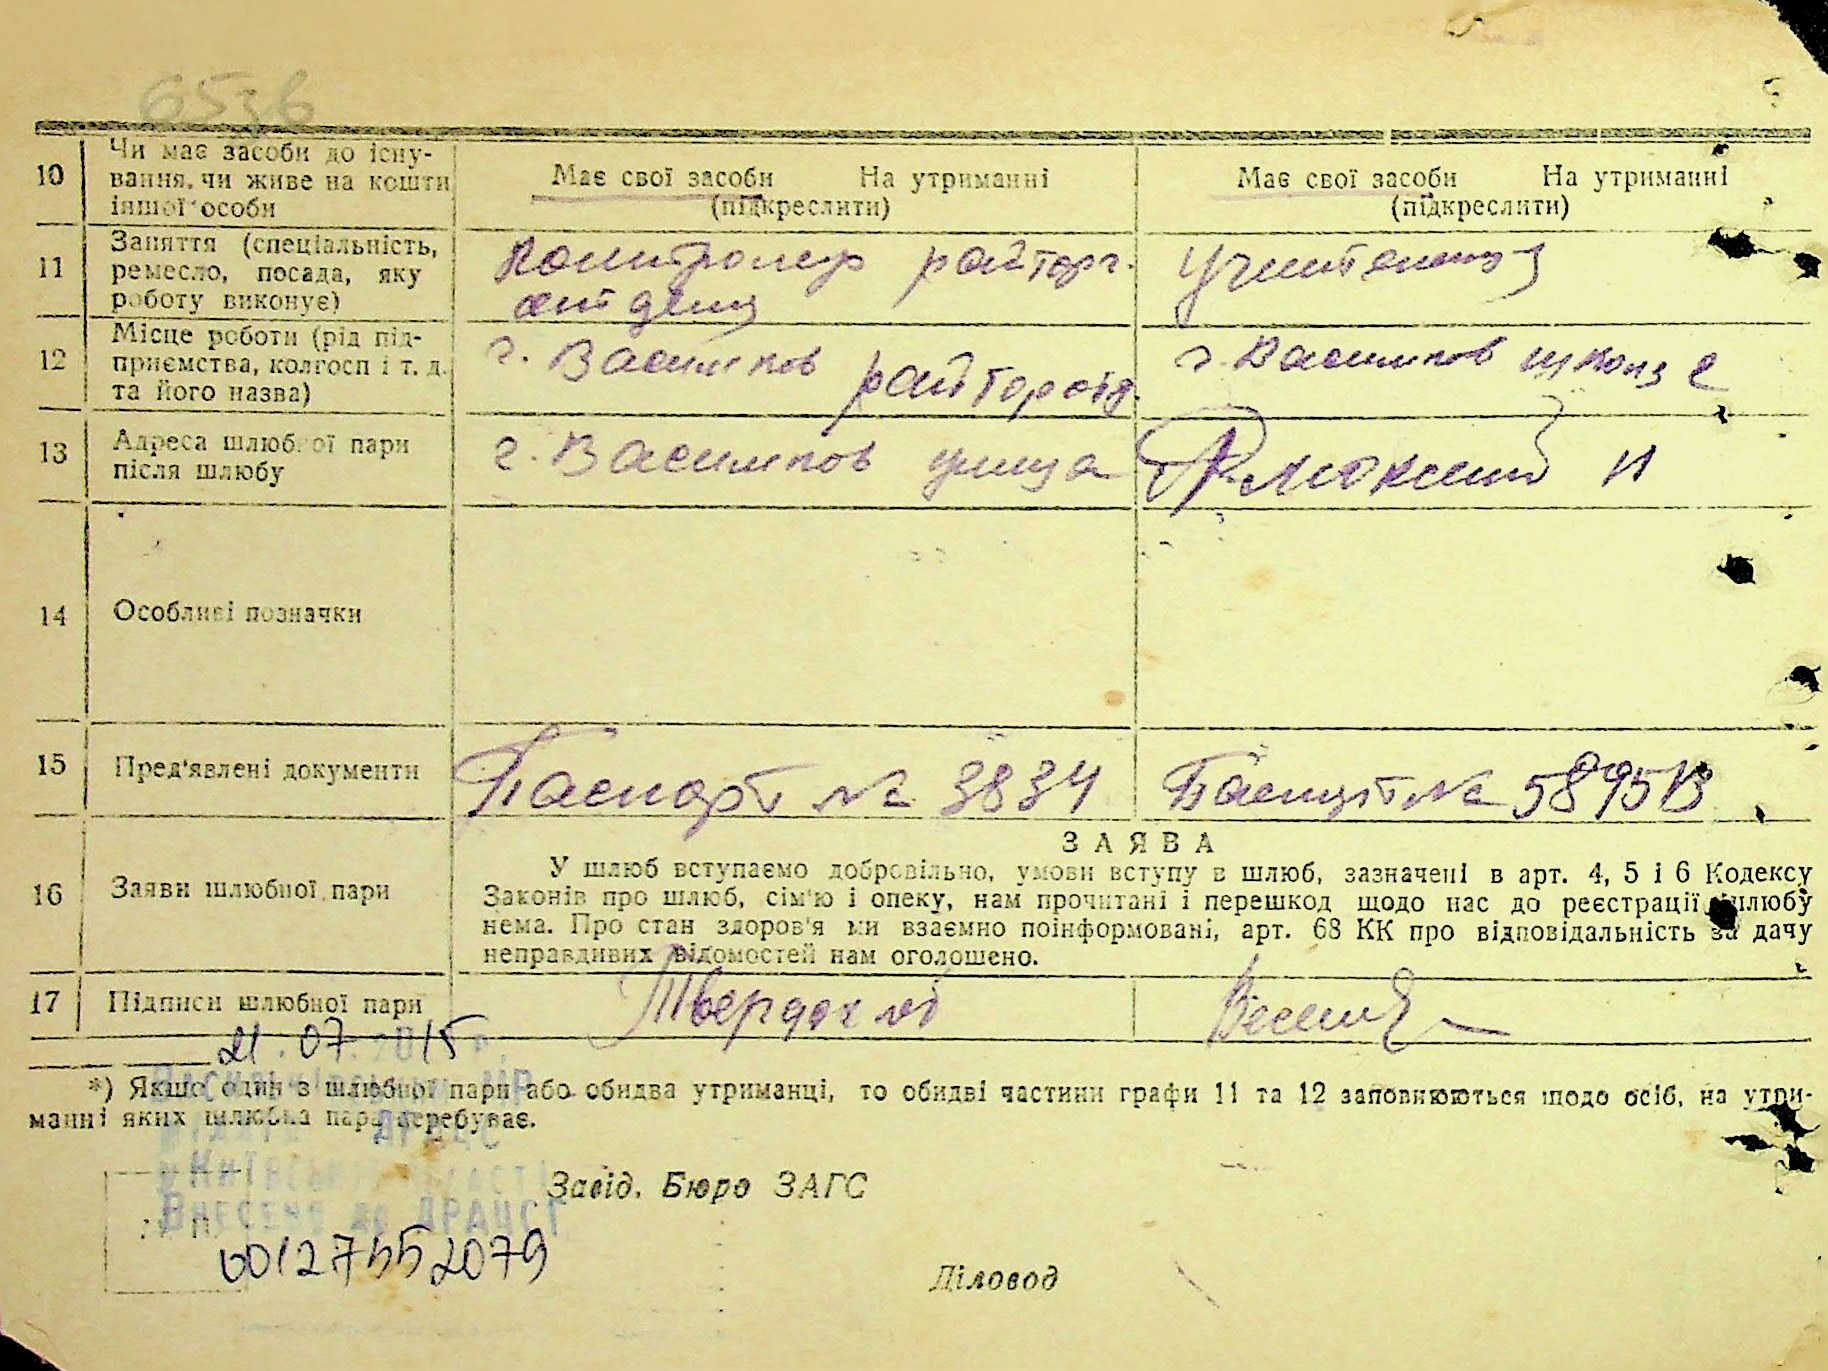 6536
10 Чи має засоби до існу-
вання, чи живе на кошти
іншої особи
Має свої засоби На утриманні
(підкреслити)
Має свої засоби На утриманні
(підкреслити)
11 Заняття (спеціальність,
ремесло, посада, яку
роботу виконує)
Контролер райторг.
Учителька
12 Місце роботи (рід під-
приємства, колгосп і т. д.
та його назва)
г. Васильков
г. Васильков школа
13 Адреса шлюбної пари
після шлюбу
г. Васильков улица
14 Особливі позначки
15 Пред'явлені документи
Паспорт № 3834
Паспорт № 5895
16 Заяви шлюбної пари
ЗАЯВА
У шлюб вступаємо добровільно, умови вступу в шлюб, зазначені в арт. 4, 5 і 6 Кодексу
Законів про шлюб, сім'ю і опеку, нам прочитані і перешкод щодо нас до реєстрації шлюбу
нема. Про стан здоров'я ми взаємно поінформовані, арт. 68 КК про відповідальність за дачу
неправдивих відомостей нам оголошено.
17 Підписи шлюбної пари
21.07.2015 р.
*) Якшо один з шлюбної пари або обидва утриманці, то обидві частини графи 11 та 12 заповнюються щодо осіб, на утри-
манні яких шлюбна пара перебуває.
ДРАЦС
Київській області
Внесено до ДРАЦСГ
00127552079
Завід. Бюро ЗАГС
Діловод